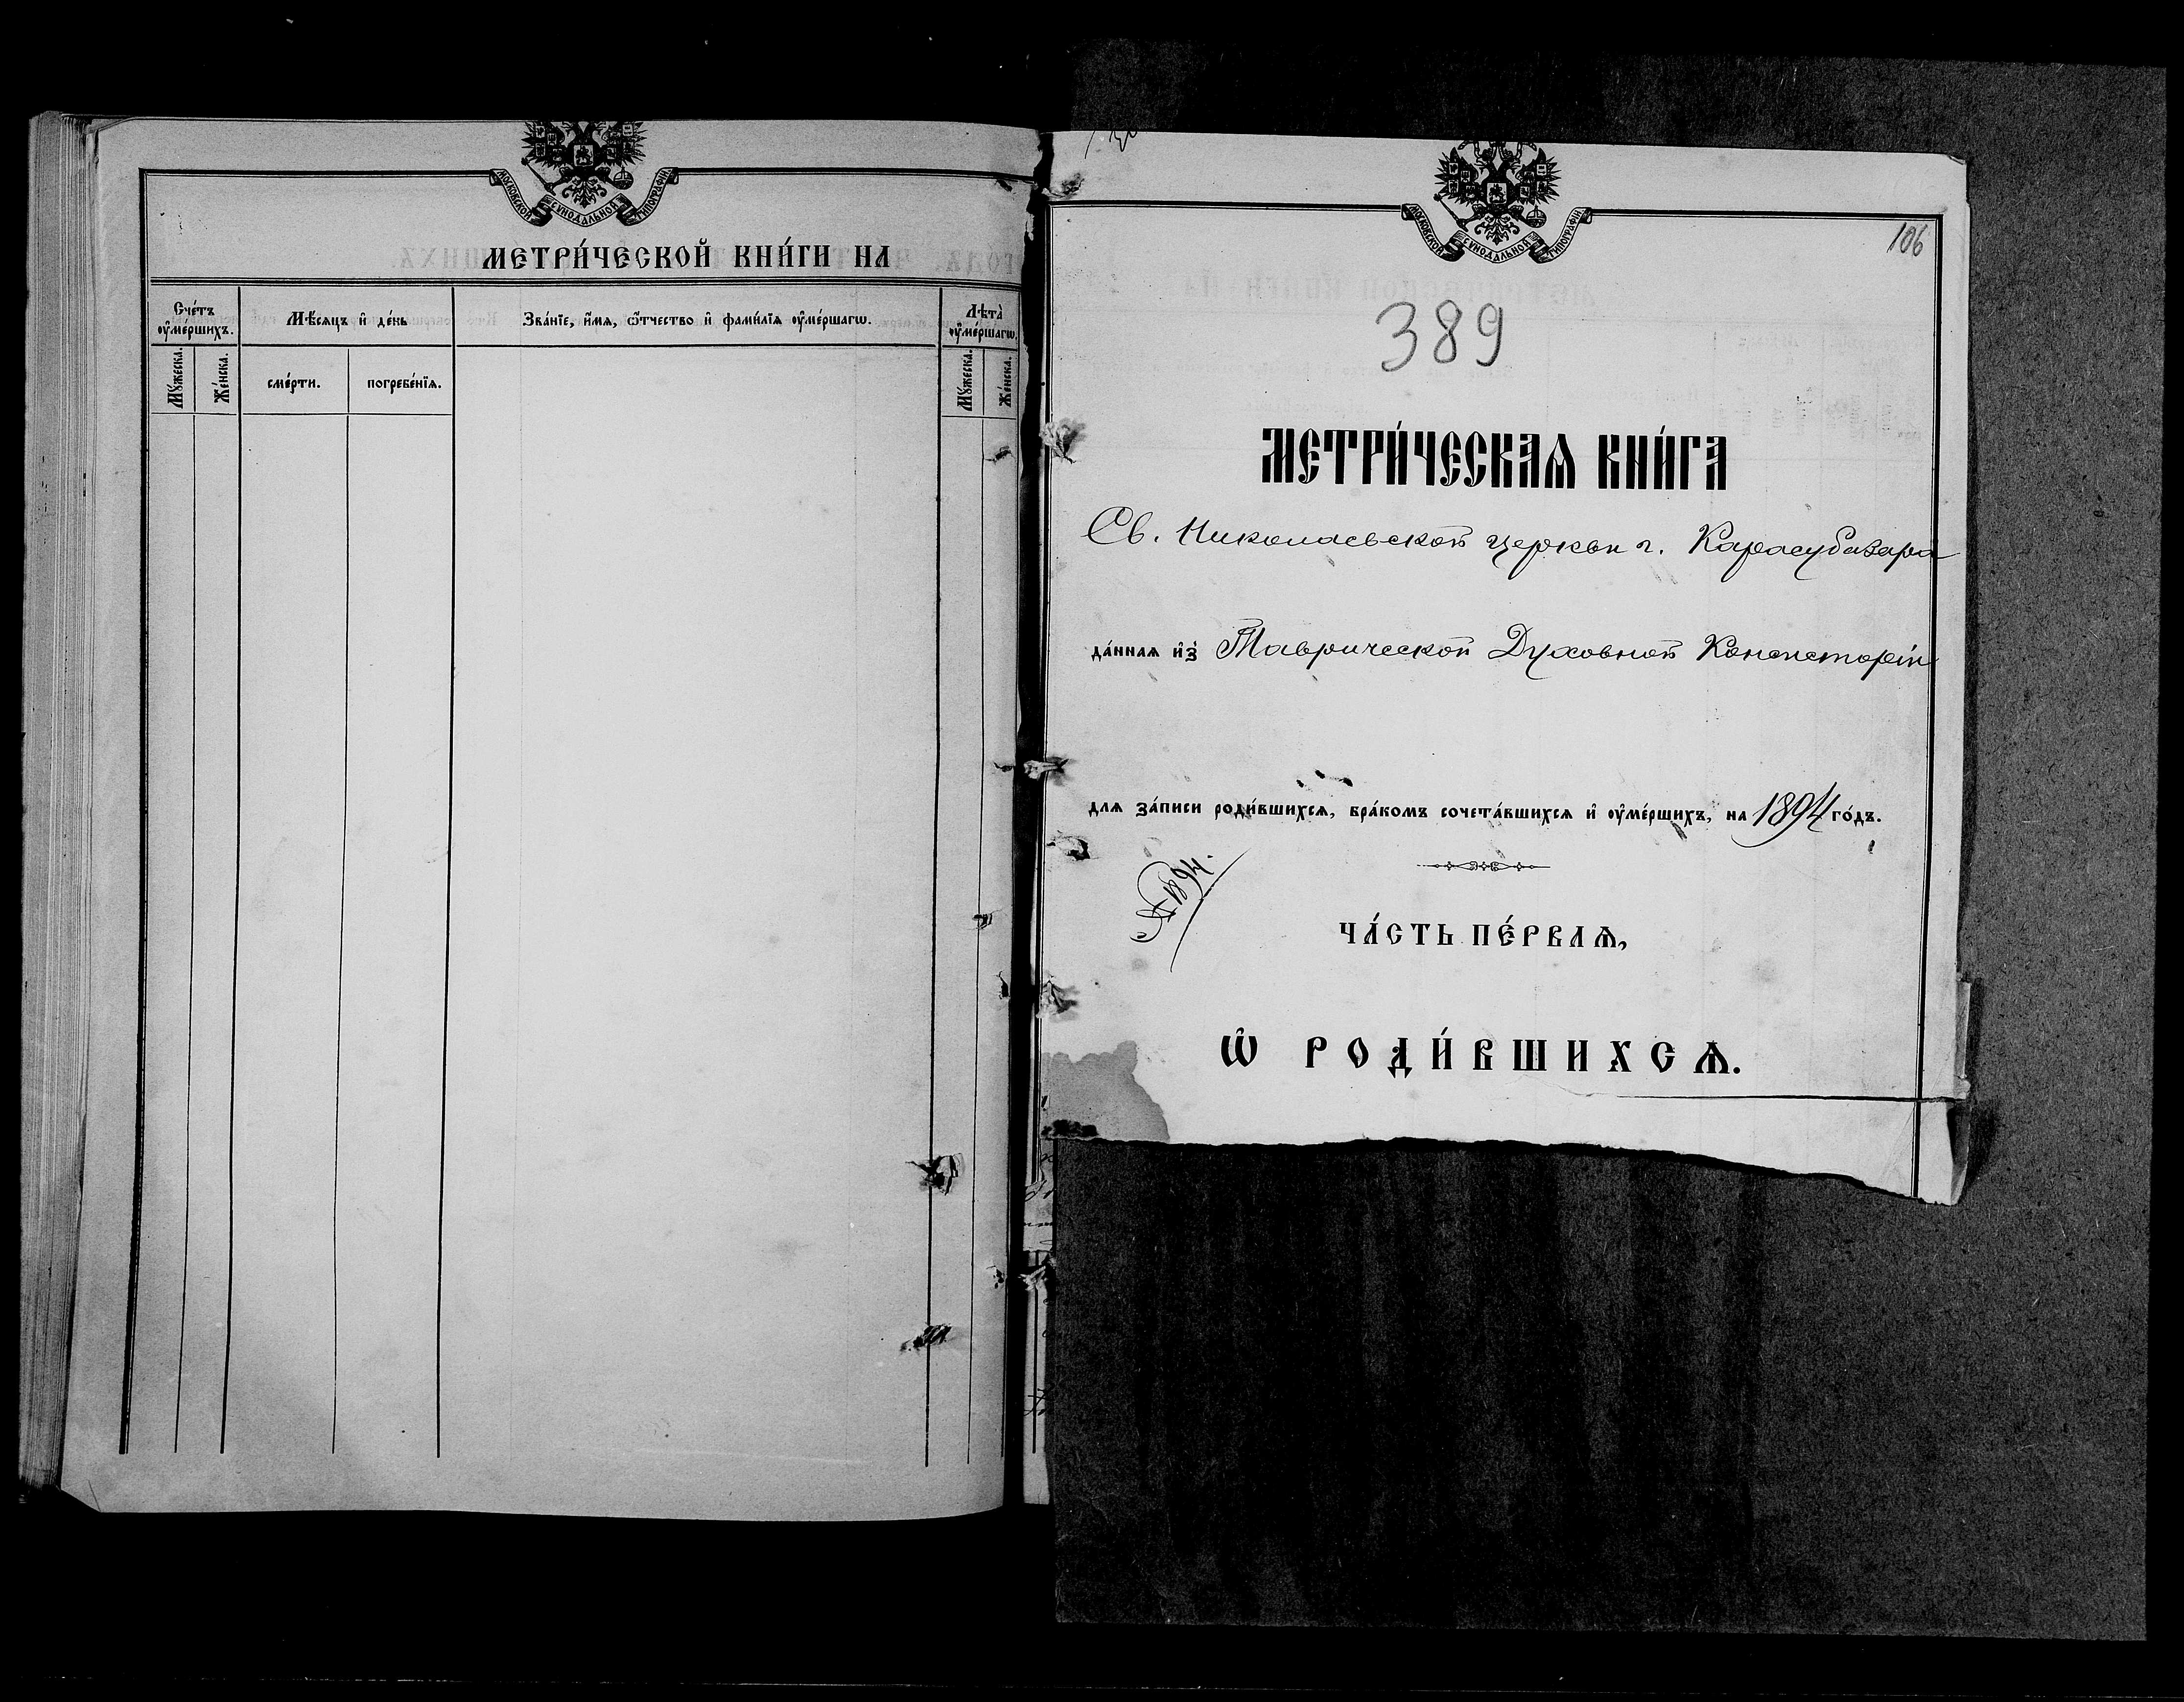 МОСКОВСКОЙ СѴНОДАЛЬНОЙ ТИПОГРАФІИ
МЕТРИ́ЧЕСКОЙ КНИ́ГИ НА
Сче́тъ ᲂу҆ме́ршихъ.
Мѣ́сяцъ и҆ де́нь
Зва́нїе, и҆́мя, ѻ҆́тчество и҆ фами́лїя ᲂу҆ме́ршагѡ.
Лѣта̀ ᲂу҆ме́ршагѡ.
Мꙋ́жеска.
Же́нска.
сме́рти.
погребе́нїѧ.
Мꙋ́жеска.
Же́нска.
МОСКОВСКОЙ СѴНОДАЛЬНОЙ ТИПОГРАФІИ
106
389
МЕТРИ́ЧЕСКАѦ КНИ́ГА
Св. Николаевской церкви г. Карасубазара
да́ннаѧ и҆з̾ Таврической Духовной Консисторіи
длѧ за́писи роди́вшихсѧ, бра́комъ сочета́вшихсѧ и҆ ᲂу҆ме́ршихъ, на 1894 го́дъ.
1894.
ЧА́СТЬ ПЕ́РВАѦ,
Ѡ҆ РОДИ́ВШИХСѦ.